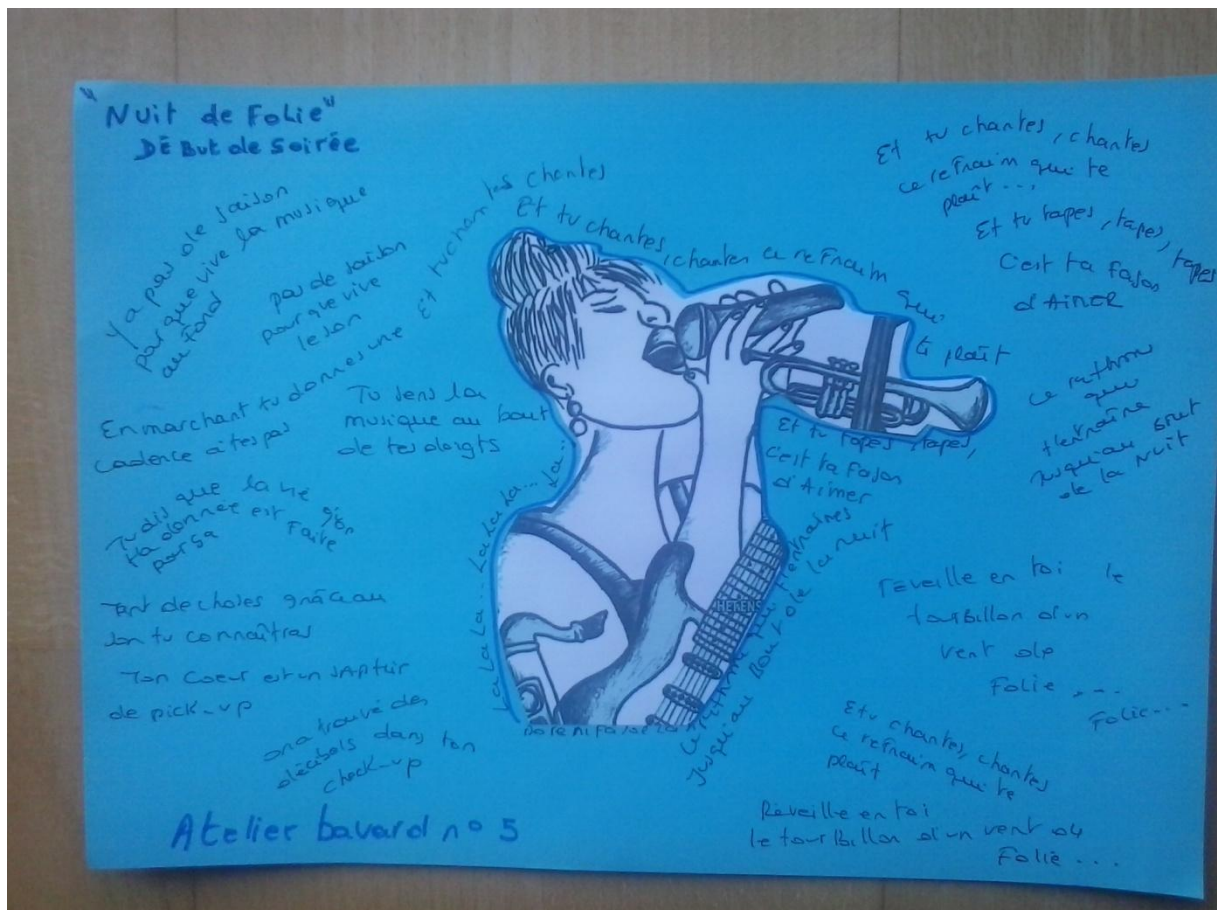 "Nuit de Folie"
Début de Soirée
Y a pas de saison
pour que vive la musique
au fond
pas de saison
pour que vive
le son
En marchant tu donnes une
cadence à tes pas
Tu sens la
musique au bout
de tes doigts
Tu dis que la vie
t'a donnée est faite
pour ça
Tant de choses grâce au
son tu connaîtras
Ton coeur est un
de pick-up
on a trouvé des
décibels dans ton
check-up
Atelier bavard n° 5
Et tu chantes
Et tu chantes, chantes ce refrain qui
te plaît
Et tu tapes, tapes,
c'est ta façon
d'Aimer
Ce rythme qui t'entraînes
jusqu'au Bout de la nuit
HETENS
La La La La La La... La...
Do re mi fa
Et tu chantes, chantes
ce refrain qui te
plaît...
Et tu tapes, tapes, tapes
C'est ta façon
d'AIMER
Ce rythme
qui
t'entraîne
jusqu'au
de la Nuit
réveille en toi le
tourbillon d'un
vent de
Folie...
Folie...
Et tu chantes, chantes
ce refrain qui te
plaît
Réveille en toi
le tourBillon d'un vent de
Folie...